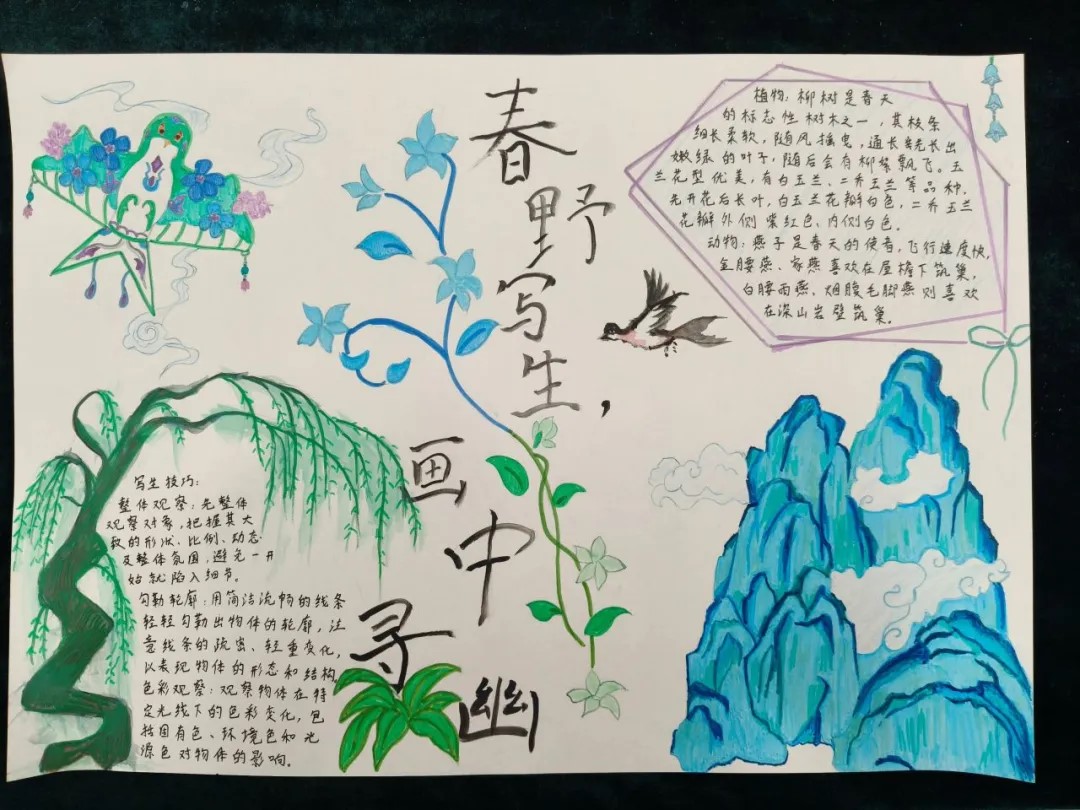 春野写生，
画中寻幽
植物：柳树是春天
的标志性树木之一，其枝条
细长柔软，随风摇曳，通长会先长出
嫩绿的叶子，随后会有柳絮飘飞。玉
兰花型优美，有白玉兰、二乔玉兰等品种，
先开花后长叶，白玉兰花瓣白色，二乔玉兰
花瓣外侧紫红色、内侧白色。
动物：燕子是春天的使者，飞行速度快，
金腰燕、家燕喜欢在屋檐下筑巢，
白腰雨燕、烟腹毛脚燕则喜欢
在深山岩壁筑巢。
写生技巧：
整体观察：先整体
观察对象，把握其大
致的形状、比例、动态
及整体氛围，避免一开
始就陷入细节。
勾勒轮廓：用简洁流畅的线条
轻轻勾勒出物体的轮廓，注
意线条的疏密、轻重变化，
以表现物体的形态和结构。
色彩观察：观察物体在特
定光线下的色彩变化，包
括固有色、环境色和光
源色对物体的影响。